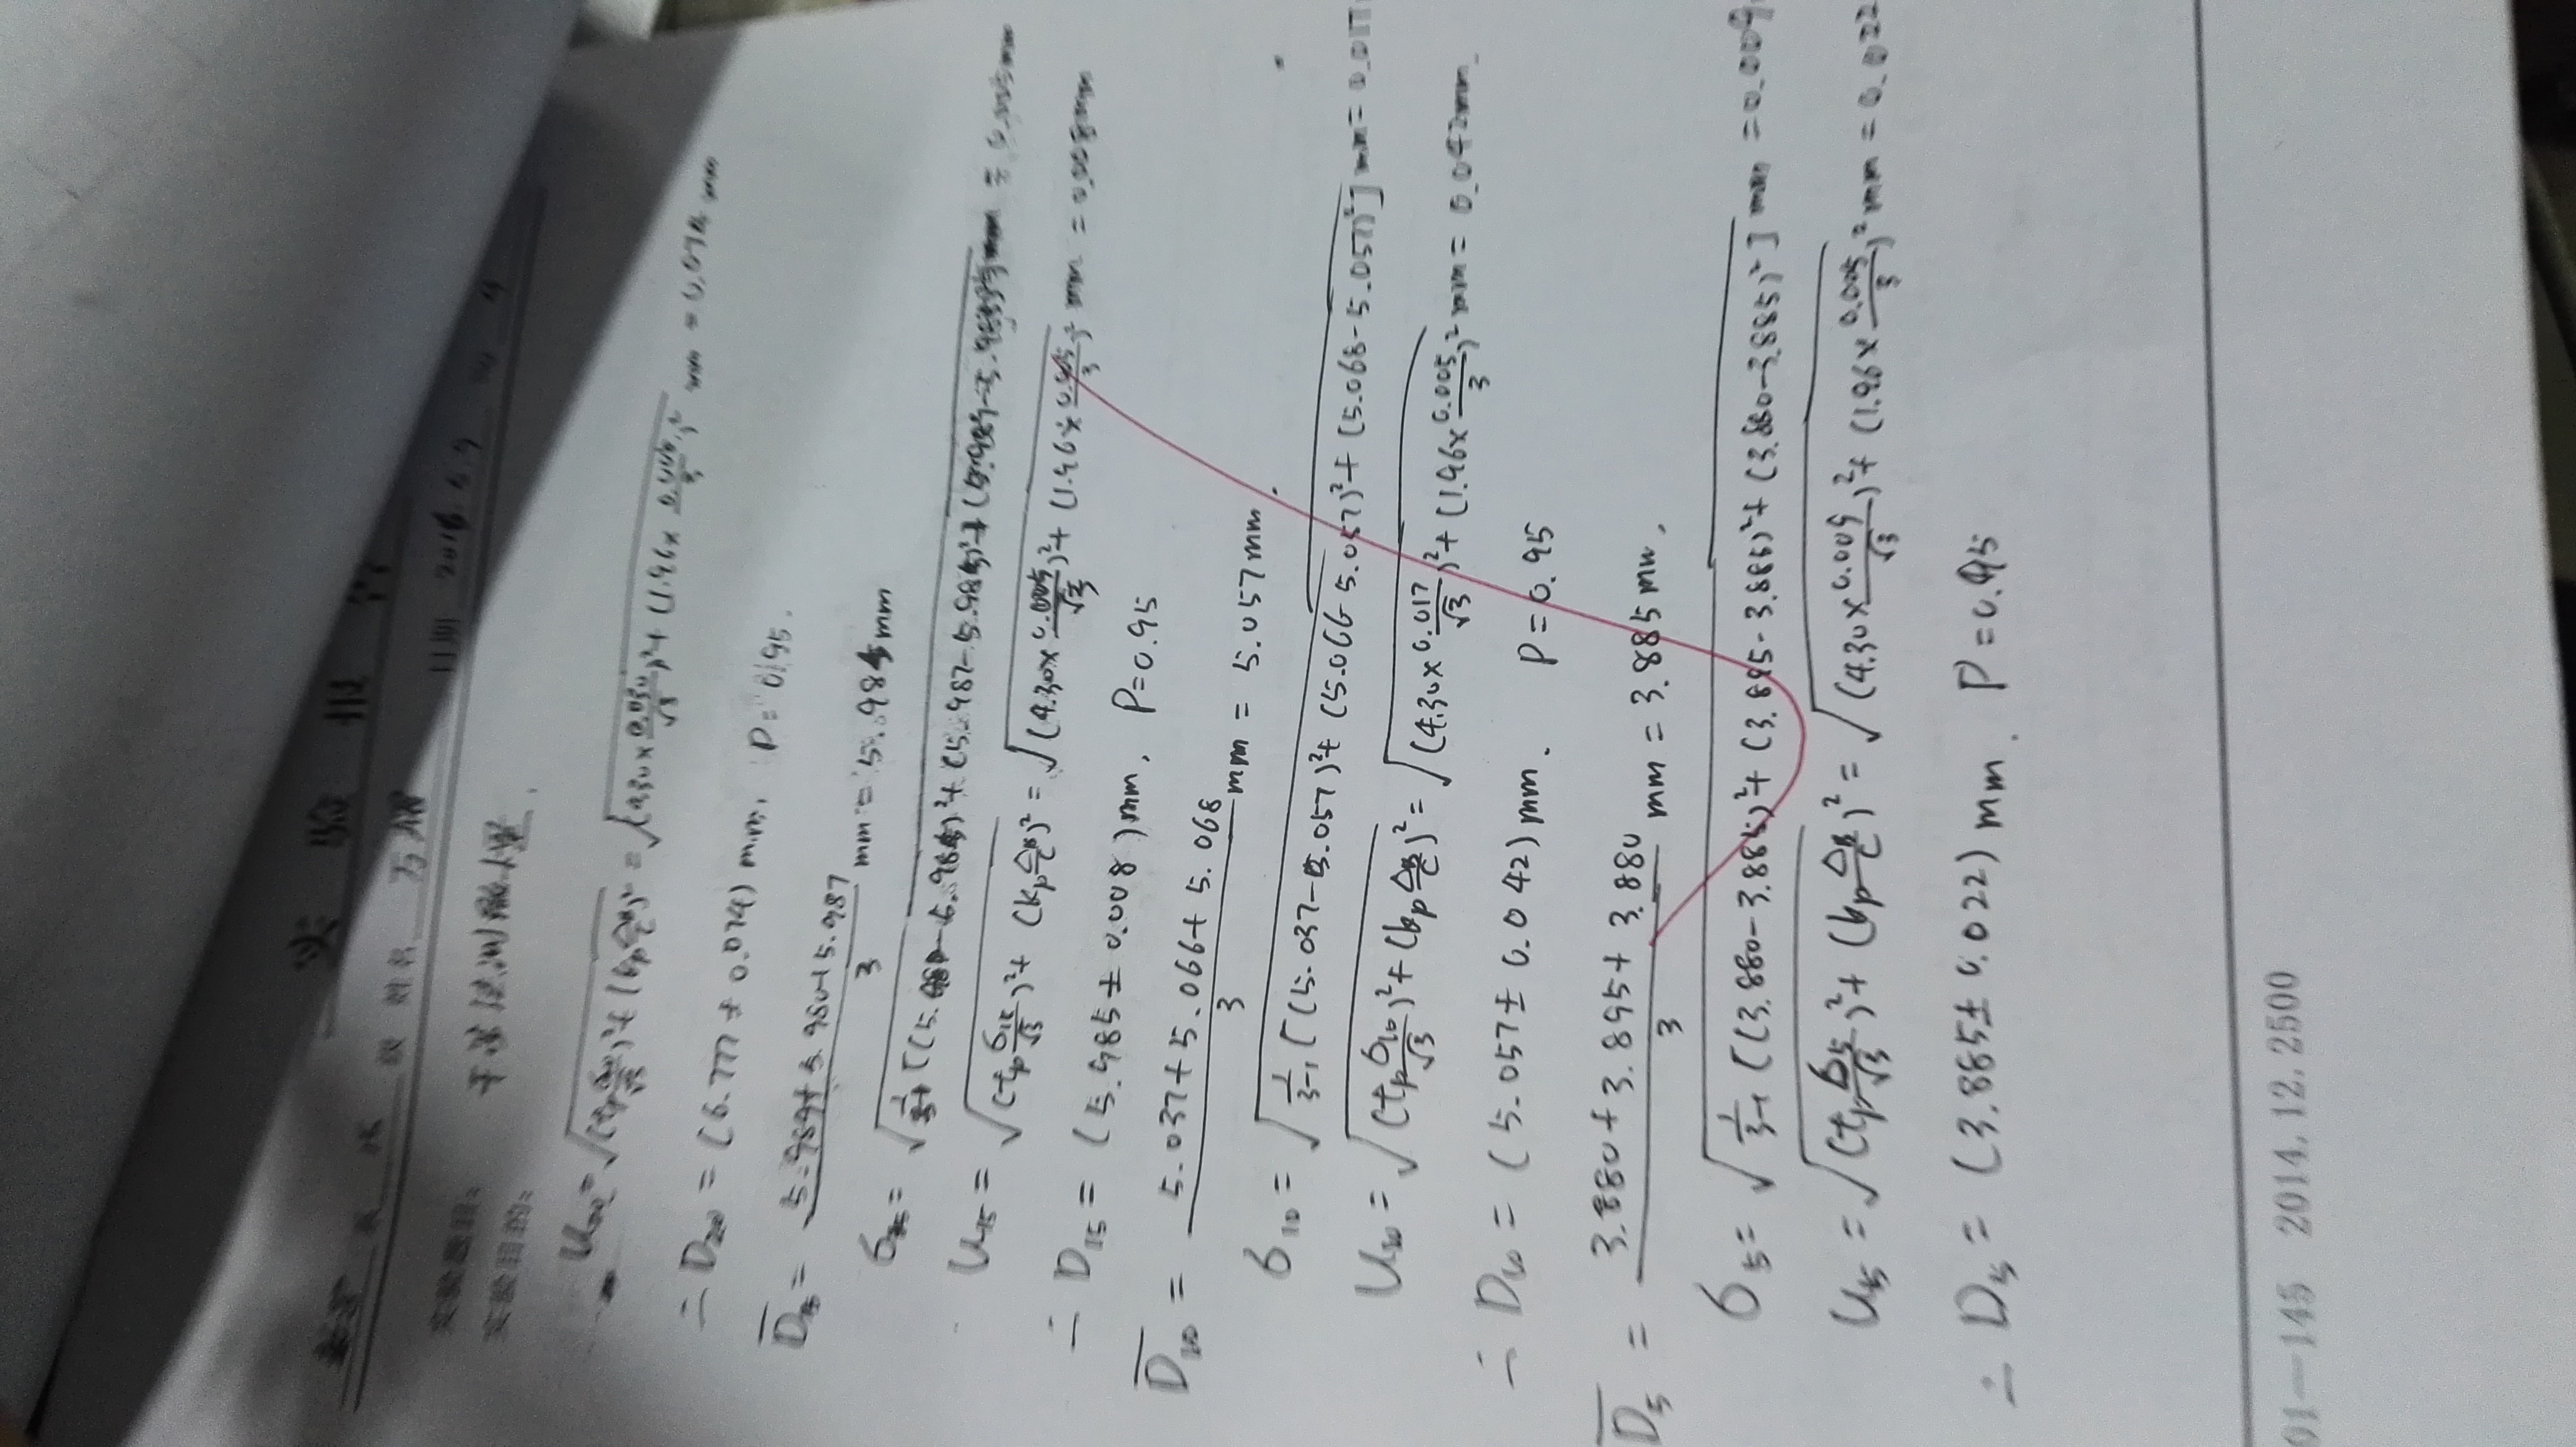 实 验 报 告
系 级 姓名 日期
实验题目: 干涉法测微小量
实验目的:
U₂₀ = √((tp σ₂₀/√3)²+(kp ΔB/C)²) = √((4.30×0.030/√3)²+(1.96×0.005/3)²) mm = 0.074 mm
∴ D₂₀ = (6.777 ± 0.074) mm, P=0.95.
D̅₁₅ = (5.989+5.980+5.987)/3 mm = 5.985 mm
U₁₅ = √((tp σ₁₅/√3)²+(kp ΔB/C)²) = √((4.30×0.005/√3)²+(1.96×0.005/3)²) mm = 0.008mm
∴ D₁₅ = (5.985 ± 0.008) mm, P=0.95
D̅₁₀ = (5.037+5.066+5.068)/3 mm = 5.057mm
σ₁₀ = √(1/(3-1) [(5.037-5.057)²+(5.066-5.057)²+(5.068-5.057)²] mm = 0.017
U₁₀ = √((tp σ₁₀/√3)²+(kp ΔB/C)²) = √((4.30×0.017/√3)²+(1.96×0.005/3)²) mm = 0.042mm
∴ D₁₀ = (5.057 ± 0.042) mm. P=0.95
D̅₅ = (3.880+3.895+3.880)/3 mm = 3.885mm.
σ₅ = √(1/(3-1) [(3.880-3.885)²+(3.895-3.885)²+(3.880-3.885)²] mm = 0.009
U₅ = √((tp σ₅/√3)²+(kp ΔB/C)²) = √((4.30×0.009/√3)²+(1.96×0.005/3)²) mm = 0.022
∴ D₅ = (3.885 ± 0.022) mm. P=0.95
01—145 2014.12.2500